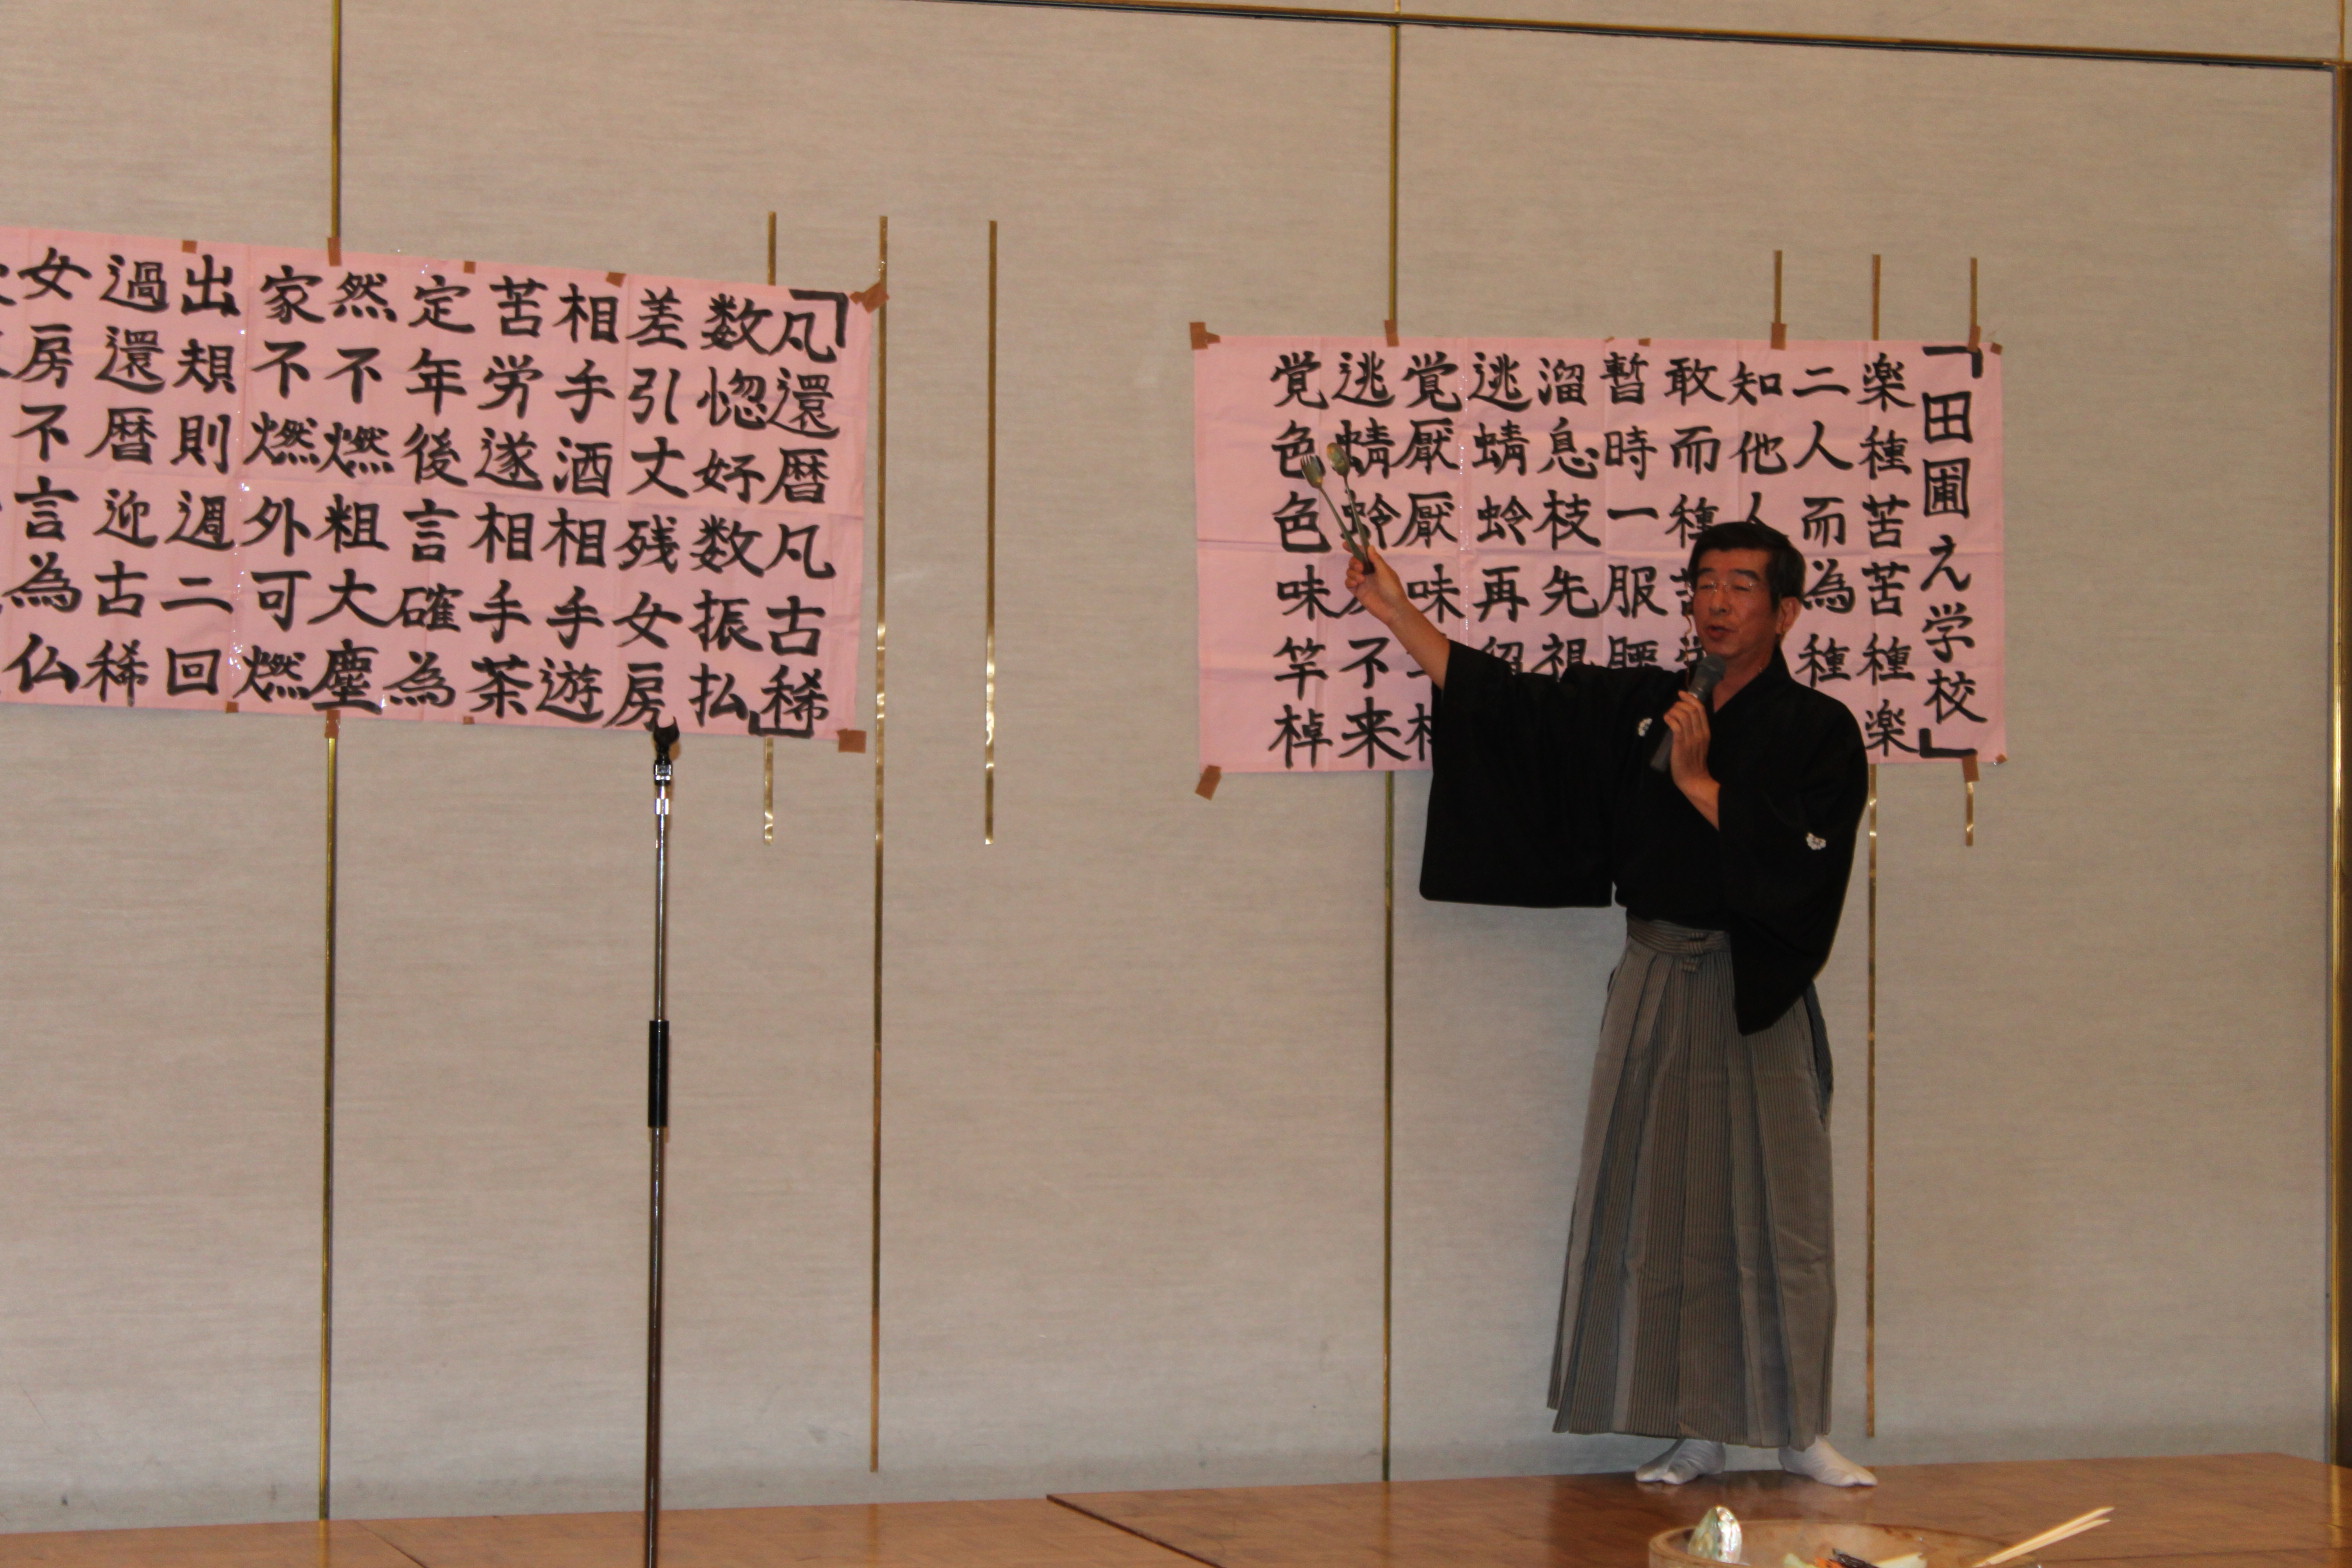 「田圃え学校」
楽種苦苦種楽
二人而為種
知他人
敢而種
暫時一服腰
溜息枝先視
逃蜻蛉再留
覚厭厭味
逃蜻蛉不来
覚色色味竿棹
「凡還暦凡古稀」
数惚好数振払
差引丈残女房
相手酒相手遊
苦労遂相手茶
定年後言確為
然不燃粗大塵
家不燃外可燃
出則週二回
過還暦迎古稀
女房不言為仏